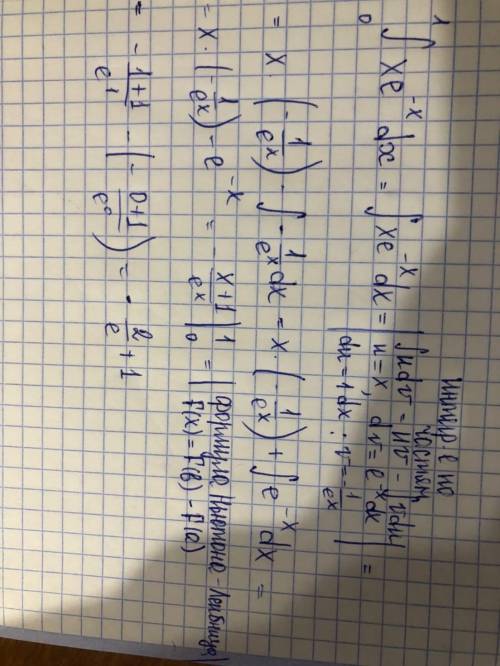 интегр-е по
частям
∫₀¹ xe^{-x} dx = ∫ xe^{-x} dx = | ∫udv = uv - ∫vdu
u = x, dv = e^{-x}dx
du = 1dx · v = -1/e^x | =
= x · (-1/e^x) - ∫ -1/e^x dx = x · (-1/e^x) + ∫ e^{-x} dx =
= x · (-1/e^x) - e^{-x} = -(x+1)/e^x |₀¹ = | формула Ньютона-Лейбница |
f(x) = F(b) - F(a)
= -(1+1)/e^1 - (-(0+1)/e^0) = -2/e + 1